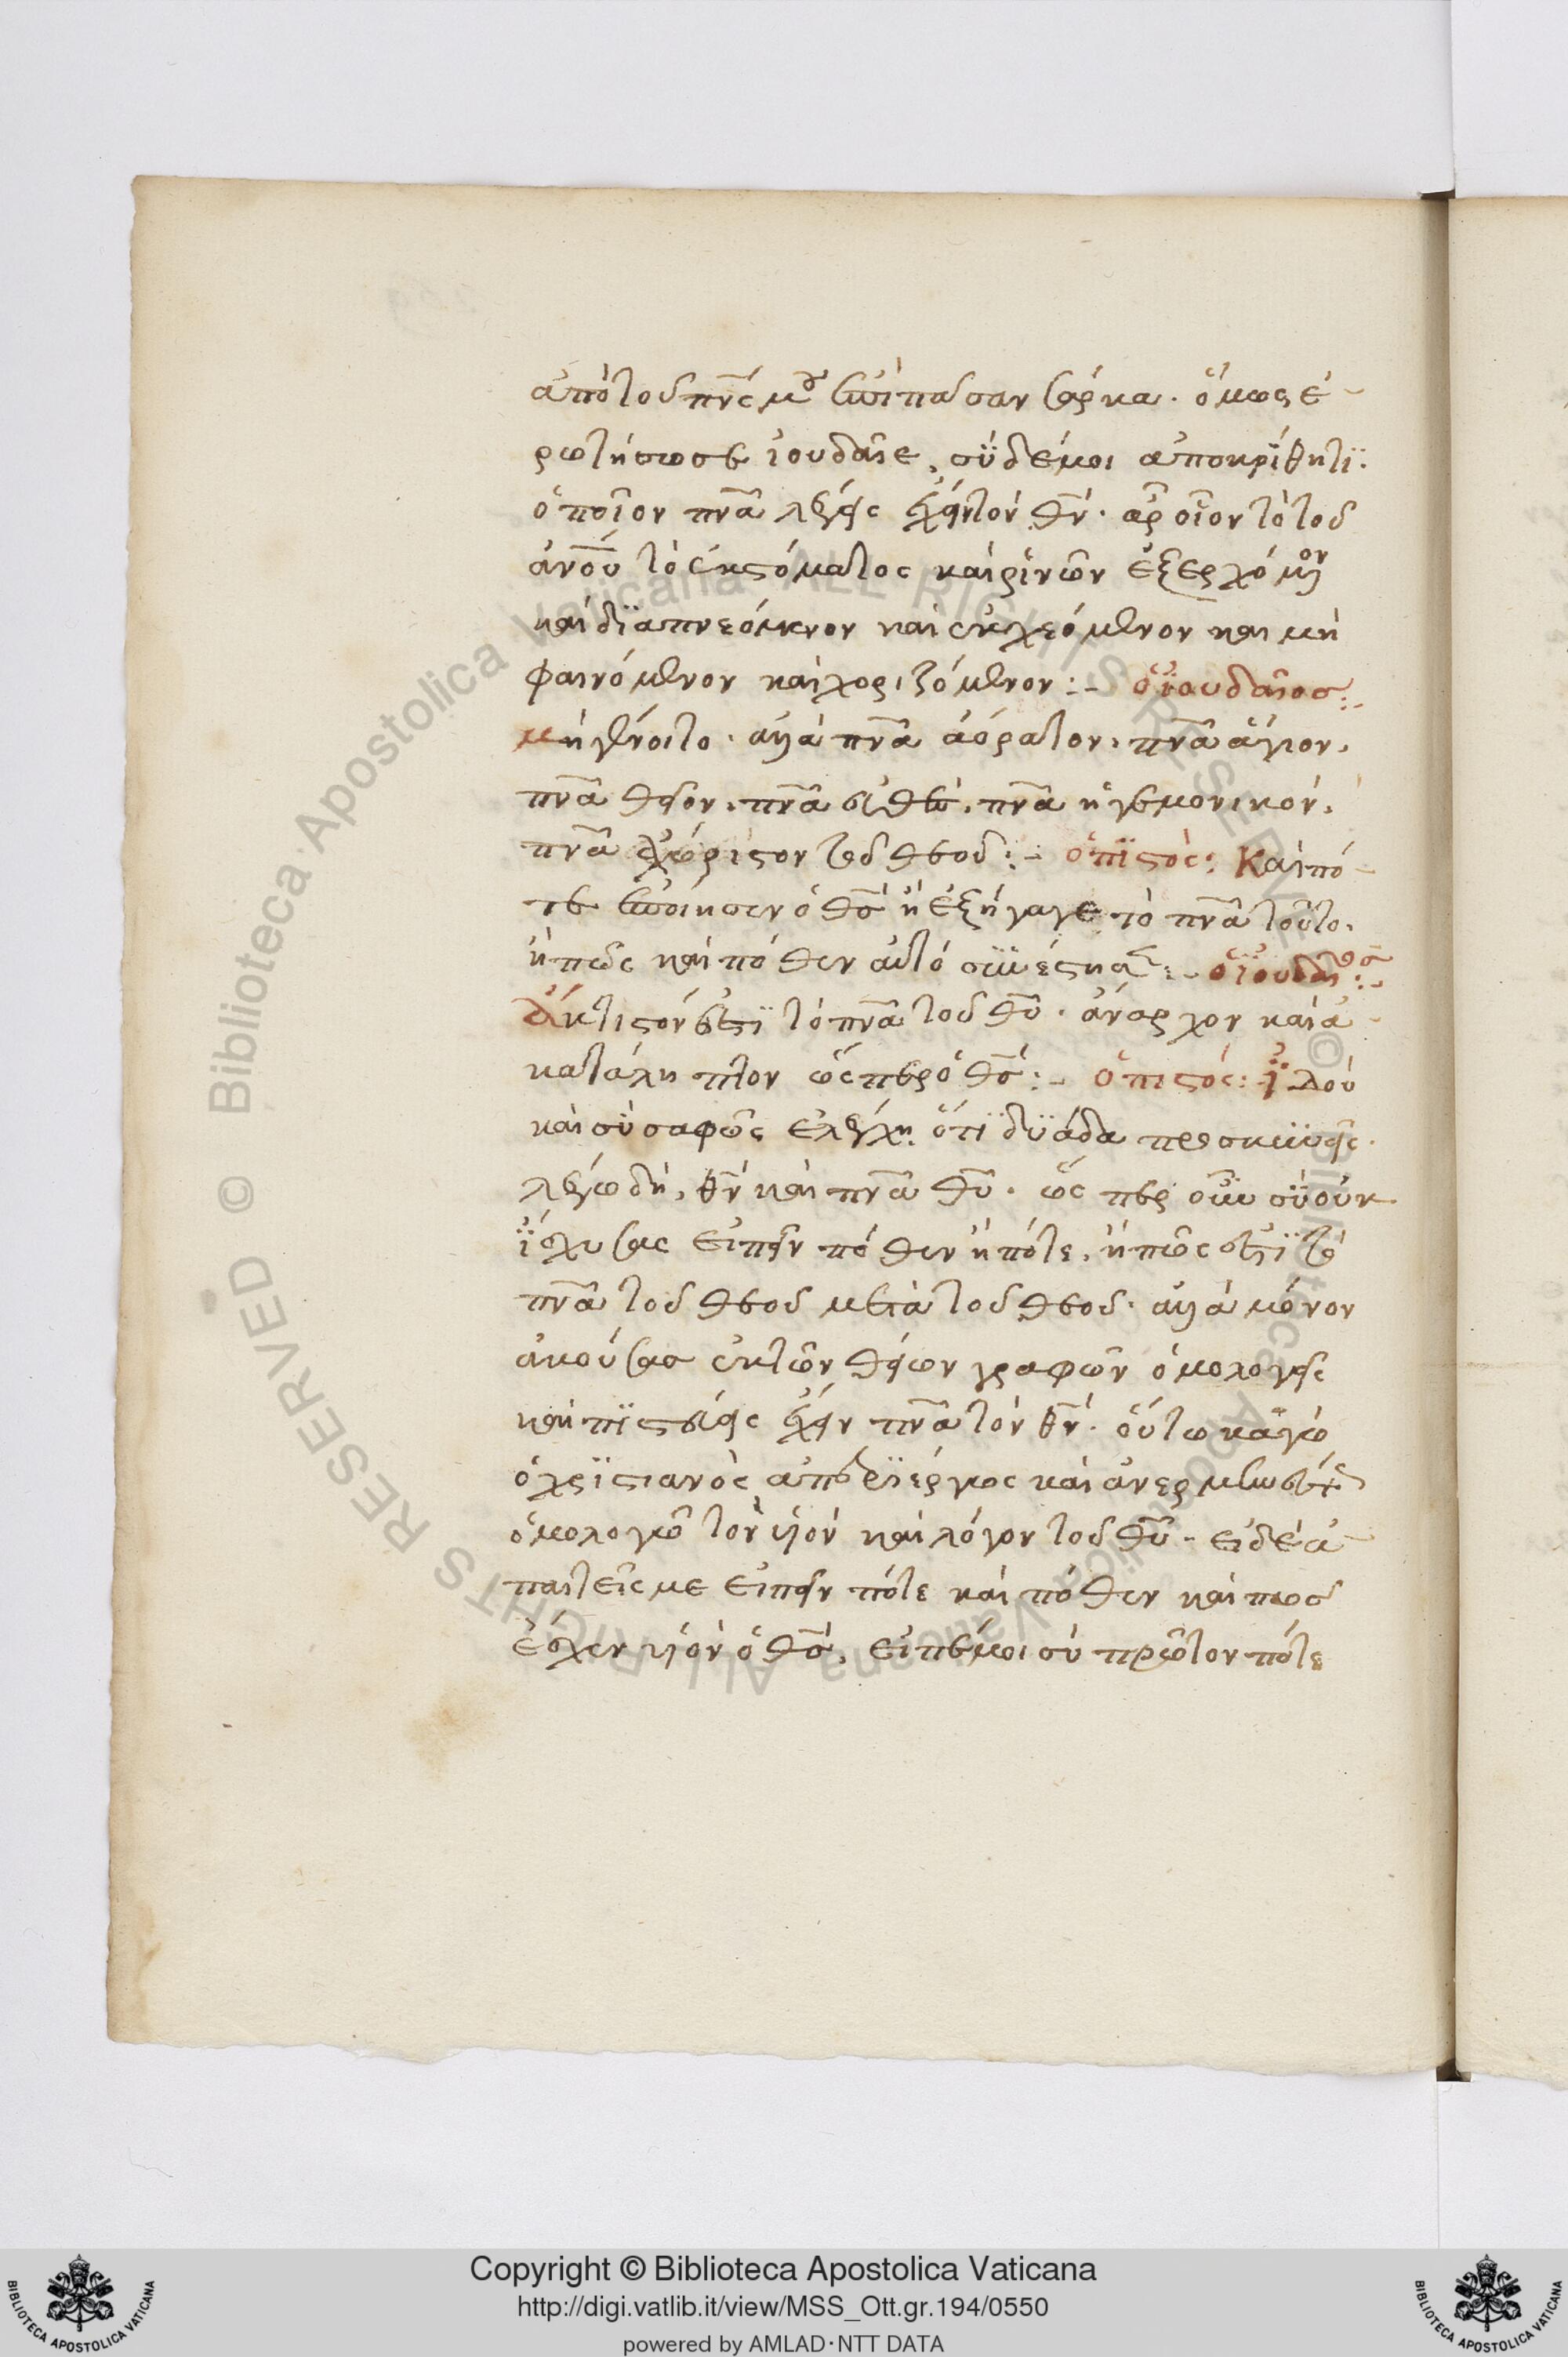 ἀπὸ τοῦ πνς μου ἐπὶ πᾶσαν σάρκα. ὅμως ἐ-
ρωτήσω σε ἰουδαῖε, σὺ δέ μοι ἀποκρίθητϊ.
ὁποῖον πνα λέγεις ἔχειν τὸν θν. ἆρ οἷον τὸ τοῦ
ἀνου τὸ ἐκ στόματος καὶ ῥινῶν ἐξερχόμενον
καὶ δϊαπνεόμενον καὶ ἐκχεόμενον καὶ μὴ
φαινόμενον καὶ χοριζόμενον :- ὁ ἰουδαῖος :-
μὴ γένοιτο. ἀλλὰ πνα ἀόρατον, πνα ἅγιον,
πνα θεῖον, πνα εὐθὲς, πνα ἡγεμονικόν,
πνα ἀχώριστον τοῦ θεοῦ :- ὁ πϊστὸς : Καὶ πό-
τε ἐποίησεν ὁ θς ἢ ἐξήγαγε τὸ πνα τοῦτο,
ἢ πῶς καὶ πόθεν αὐτὸ συνέστησεν :- ὁ ἰουδαῖος :-
Ἄκτιστόν ἐστϊ τὸ πνα τοῦ θυ. ἄναρχον καὶ ἀ-
κατάληπτον ὥσπερ ὁ θς :- ὁ πιστός : ἰδοὺ
καὶ σὺ σαφῶς ἐλέγχη ὅτϊ δϋάδα προσκυνεῖς.
λέγω δὴ, θν καὶ πνα θυ. ὥς περ οὖν σὺ οὐκ
ἴσχυσας εἰπεῖν πόθεν ἢ πότε, ἢ πῶς ἐστϊ τὸ
πνα τοῦ θεοῦ μετὰ τοῦ θεοῦ. ἀλλὰ μόνον
ἀκούσας ἐκ τῶν θείων γραφῶν ὁμολογεῖς
καὶ πϊστεύεις ἔχειν πνα τὸν θν. οὕτω κἀγὼ
ὁ χρϊστιανὸς ἀπερϊέργως καὶ ἀνερμηνεύτως
ὁμολογῶ τὸν υἱὸν καὶ λόγον τοῦ θυ. εἰ δὲ ἀ-
παιτεῖς με εἰπεῖν πότε καὶ πόθεν καὶ πῶς
ἔσχεν υἱὸν ὁ θς, εἰπέ μοι σὺ πρῶτον πότε
Copyright © Biblioteca Apostolica Vaticana
http://digi.vatlib.it/view/MSS_Ott.gr.194/0550
powered by AMLAD·NTT DATA